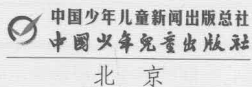 中国少年儿童新闻出版总社
中国少年兒童出版社
北京